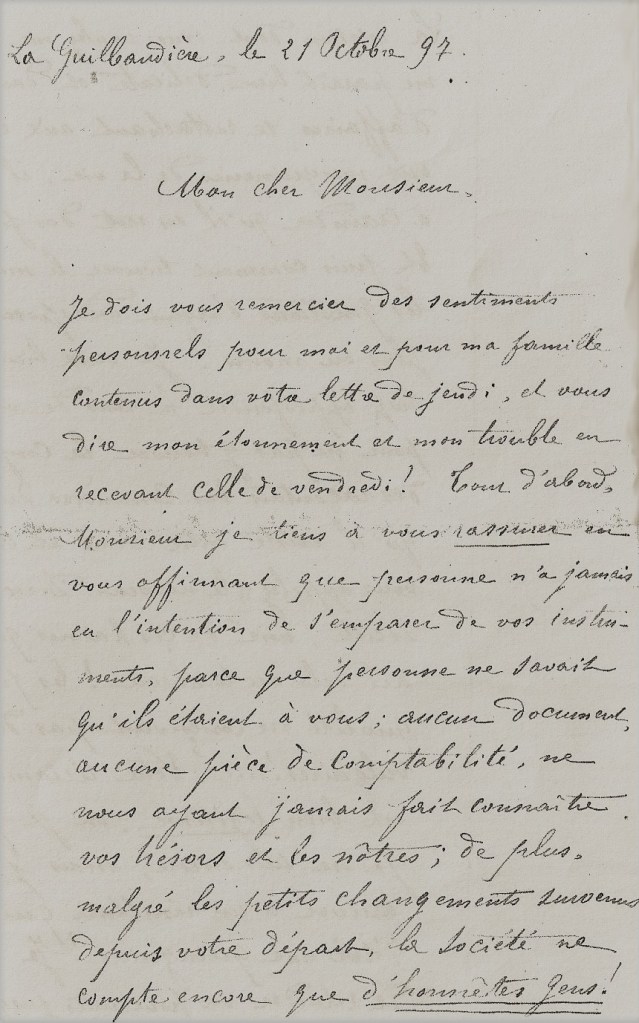 La Guilbaudière, le 21 Octobre 97.
Mon cher Monsieur,
Je dois vous remercier des sentiments
personnels pour moi et pour ma famille
contenus dans votre lettre de jeudi, et vous
dire mon étonnement et mon trouble en
recevant celle de vendredi! Tout d'abord,
Monsieur je tiens à vous rassurer en
vous affirmant que personne n'a jamais
eu l'intention de s'emparer de vos instru-
ments, parce que personne ne savait
qu'ils étaient à vous; aucun document,
aucune pièce de comptabilité, ne
nous ayant jamais fait connaître
vos trésors et les nôtres; de plus,
malgré les petits changements survenus
depuis votre départ, la société ne
compte encore que d'honnêtes gens!